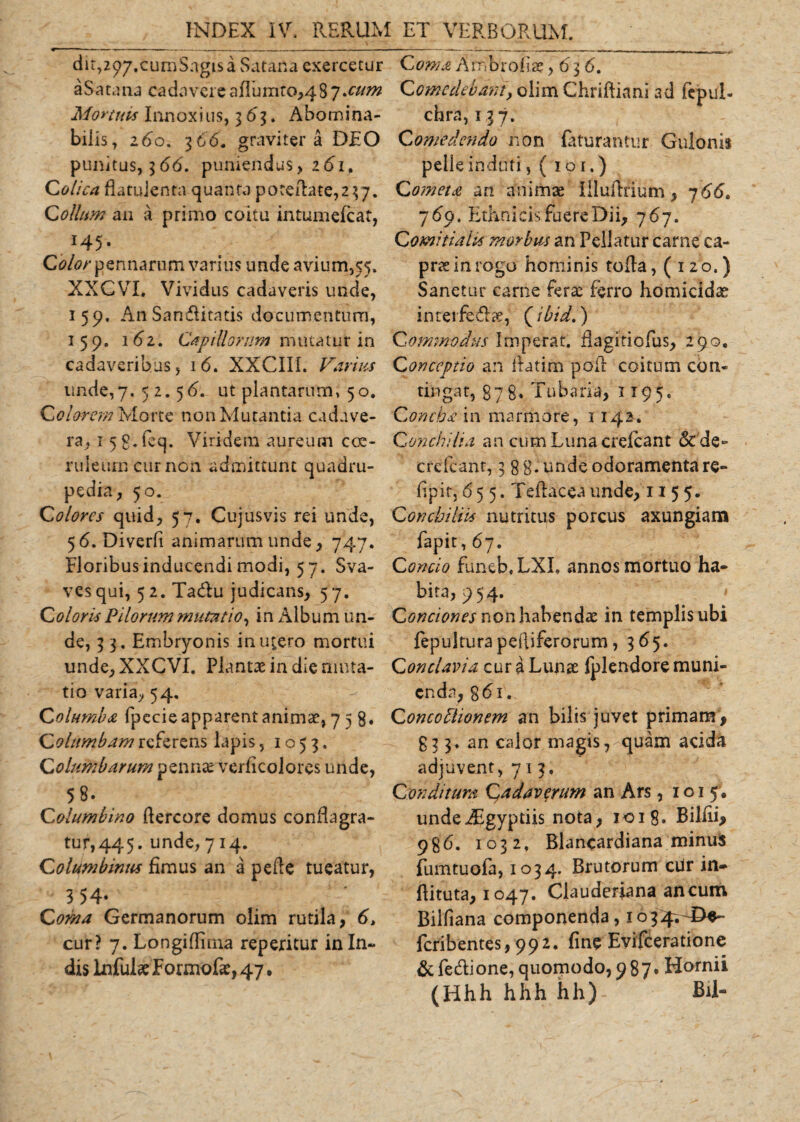 INDEX IV. RERUM ET VERBORUM.
dit,297.cum Sagis à Satana exercetur
àSatana cadavere assumto,487.cum
Mortuis Innoxius, 363. Abomina-
bilis, 260. 366. graviter à DEO
punitus, 366. puniendus, 261.
Colica flatulenta quanta potestate,237.
Collum an à primo coitu intumescat,
145.
Color pennarum varius unde avium,55.
XXCVI. Vividus cadaveris unde,
159. An Sanctitatis documentum,
159. 162. Capillorum mutatur in
cadaveribus, 16. XXCIII. Varius
unde,7. 52. 56. ut plantarum, 50.
Colorem Morte non Mutantia cadave-
ra, 158. seq. Viridem aureum cœ-
ruleum cur non admittunt quadru-
pedia, 50.
Colores quid, 57. Cujusvis rei unde,
56. Diversi animarum unde, 747.
Floribus inducendi modi, 57. Sva-
ves qui, 52. Tactu judicans, 57.
Coloris Pilorum mutatio, in Album un-
de, 33. Embryonis in utero mortui
unde, XXCVI. Plantæ in die muta-
tio varia, 54.
Columbæ specie apparent animæ, 758.
Columbam referens lapis, 1053.
Columbarum pennæ versicolores unde,
58.
Columbino stercore domus conflagra-
tur,445. unde, 714.
Columbinus fimus an à peste tueatur,
354.
Coma Germanorum olim rutila, 6.
cur? 7. Longissima reperitur in In-
dis Insulæ Formosæ, 47.
Comæ Ambrosiæ, 636.
Comedebant, olim Christiani ad sepul-
chra, 137.
Comedendo non saturantur Gulonis
pelle induti, (101.)
Cometæ an animæ Illustrium, 766.
769. Ethnicis fuere Dii, 767.
Comitialis morbus an Pellatur carne ca-
præ in rogo hominis tosta, (120.)
Sanetur carne feræ ferro homicidæ
interfectæ, (ibid.)
Commodus Imperat. flagitiosus, 290.
Conceptio an statim post coitum con-
tingat, 878. Tubaria, 1195.
Conchæ in marmore, 1142.
Conchilia an cum Luna crescant & de-
crescant, 388. unde odoramenta re-
sipit, 655. Testacea unde, 1155.
Conchiliis nutritus porcus axungiam
sapit, 67.
Concio funeb. LXI. annos mortuo ha-
bita, 954.
Conciones non habendæ in templis ubi
sepultura pestiferorum, 365.
Conclavia cur à Lunæ splendore muni-
enda, 861.
Concoctionem an bilis juvet primam,
833. an calor magis, quàm acida
adjuvent, 713.
Conditura Cadaverum an Ars, 1015.
unde Ægyptiis nota, 1018. Bilsii,
986. 1032. Blancardiana minus
sumtuosa, 1034. Brutorum cur in-
stituta, 1047. Clauderiana an cum
Bilsiana componenda, 1034. De-
scribentes, 992. sine Evisceratione
& sectione, quomodo, 987. Hornii
(Hhh hhh hh) Bil-